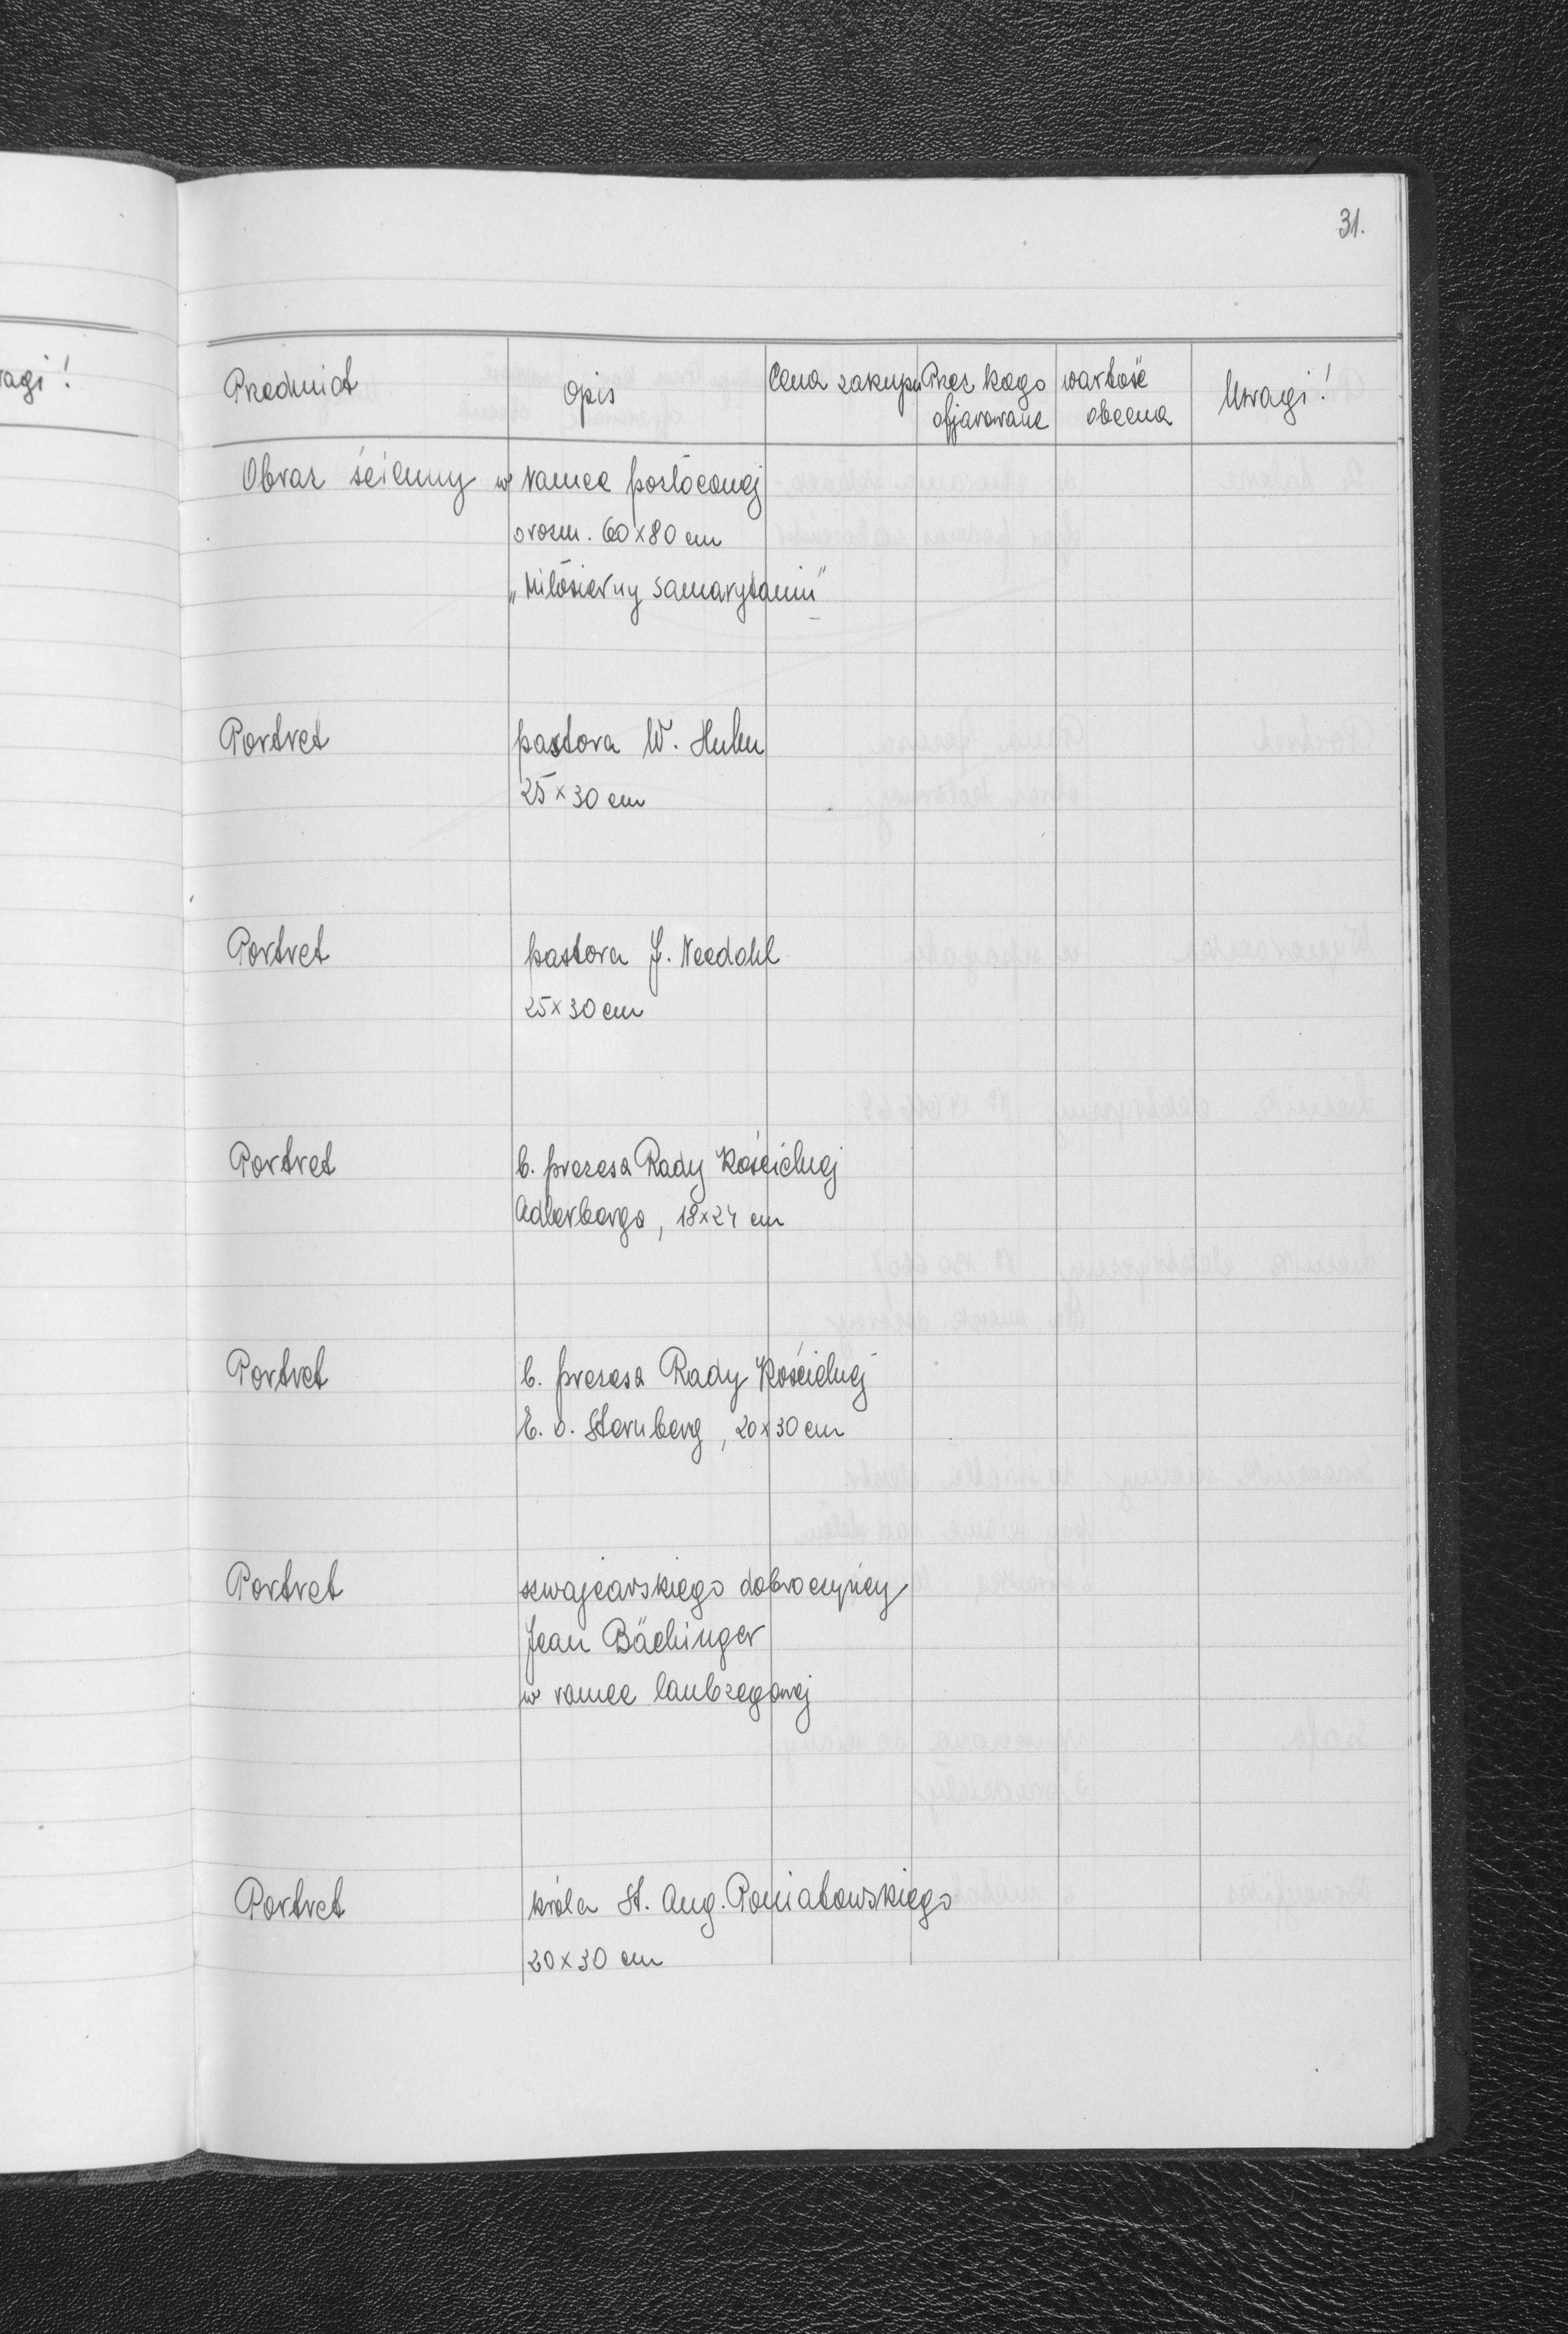 31.
ragi!
Przedmiot Opis Cena zakupu Przez kogo wartość Uwagi!
ofjarowane obecna
Obraz ścienny w ramce pozłóconej
o rozm. 60x80 cm
„Milósierny Samarytanin"
Portret pastora W. Huhn
25x30 cm
Portret pastora J. Needahl
25x30 cm
Portret b. prezesa Rady Kościelnej
Adlerberga, 18x24 cm
Portret b. prezesa Rady Kościelnej
E. v. Sternberg, 20x30 cm
Portret szwajcarskiego dobroczyńcy
Jean Bächinger
w ramce laubzegowej
Portret króla St. Aug. Poniatowskiego
20x30 cm